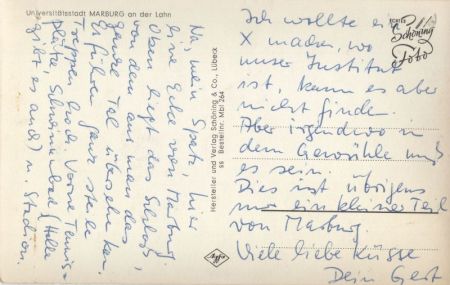 Universitätsstadt MARBURG an der Lahn
Na, mein Spatz, hier
eine Ecke von Marburg.
Oben liegt das Schloß,
von dem aus man das
ganze Tal übersehen kann.
Es führen ganz steile
Treppen hoch. Vorne Tennis-
plätze, Schwimmbad (Halle
gibt es auch) u. Stadion.
Hersteller und Verlag Schöning & Co., Lübeck
ss Bestellnr. Mbl 264
Agfa
ECHTES
Schöning
Foto
Ich wollte ein
X machen, wo
unser Institut
ist, kann es aber
nicht finden
Aber irgendwo in
dem Gewühle muß
es sein.
Dies ist übrigens
nur ein kleiner Teil
von Marburg.
Viele liebe Küsse
Dein Gert